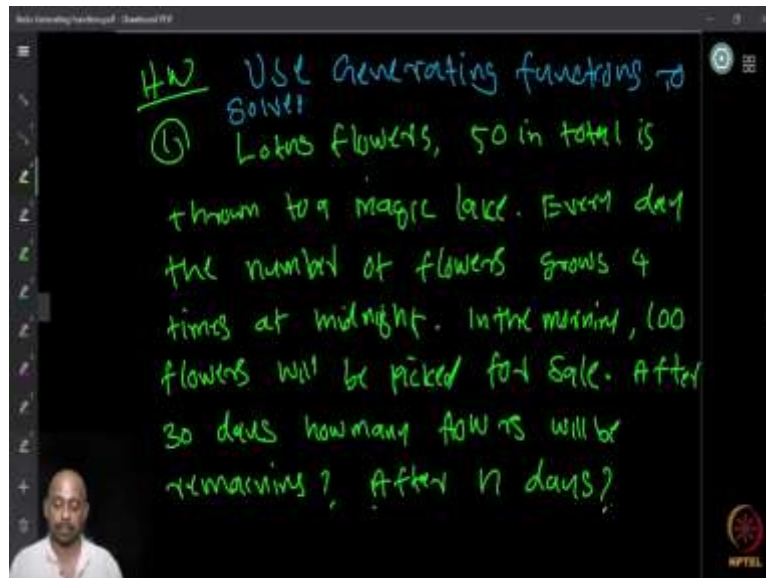 HW Use Generating functions to
solve:
① Lotus flowers, 50 in total is
thrown to a magic lake. Every day
the number of flowers grows 4
times at midnight. In the morning, 100
flowers will be picked for sale. After
30 days how many flowrs will be
remaining? After n days?
NPTEL